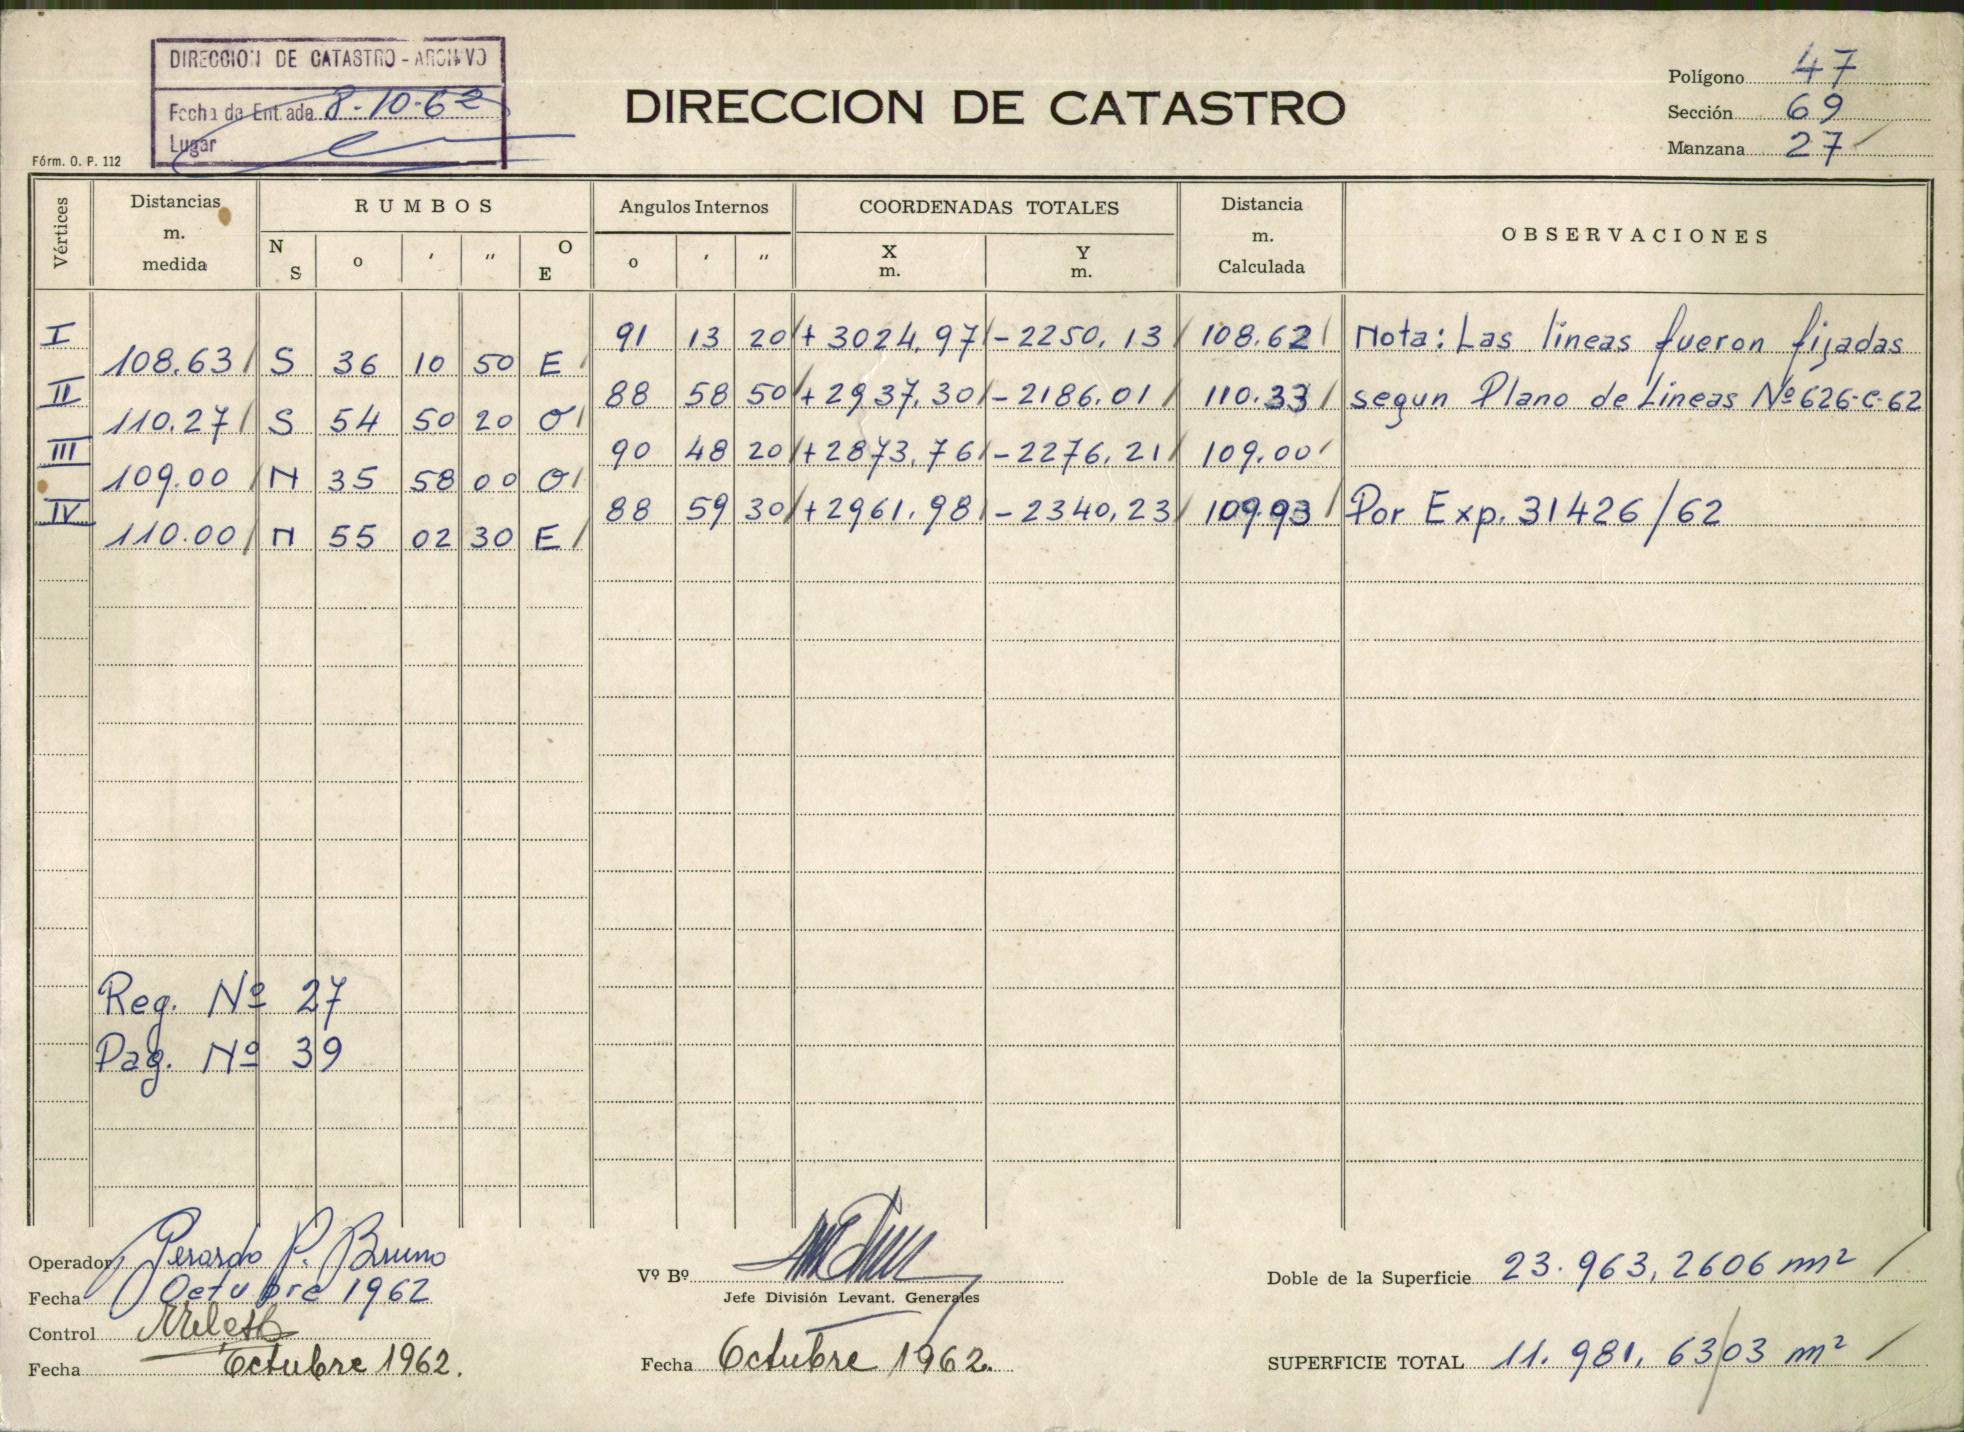 DIRECCION DE CATASTRO - ARCHIVO
Fecha de Entrada 8-10-62
Lugar
Fórm. O. P. 112
DIRECCION DE CATASTRO
Polígono 47
Sección 69
Manzana 27
Vértices
Distancias m. medida
RUMBOS
N S o ' " O E
Angulos Internos
o ' "
COORDENADAS TOTALES
X m. Y m.
Distancia m. Calculada
OBSERVACIONES
I 91 13 20 + 3024,97 - 2250,13 108.62 Nota: Las lineas fueron fijadas
108.63 S 36 10 50 E
II 88 58 50 + 2937,30 - 2186.01 110.33 segun Plano de Lineas Nº 626-C-62
110.27 S 54 50 20 O
III 90 48 20 + 2873,76 - 2276,21 109.00
109.00 N 35 58 00 O
IV 88 59 30 + 2961,98 - 2340,23 109.93 Por Exp. 31426/62
110.00 N 55 02 30 E
Reg. Nº 27
Pag. Nº 39
Operador Gerardo P. Bruno
Fecha Octubre 1962
Control
Fecha Octubre 1962.
Vº Bº
Jefe División Levant. Generales
Fecha Octubre 1962.
Doble de la Superficie 23.963,2606 m²
SUPERFICIE TOTAL 11.981,6303 m²